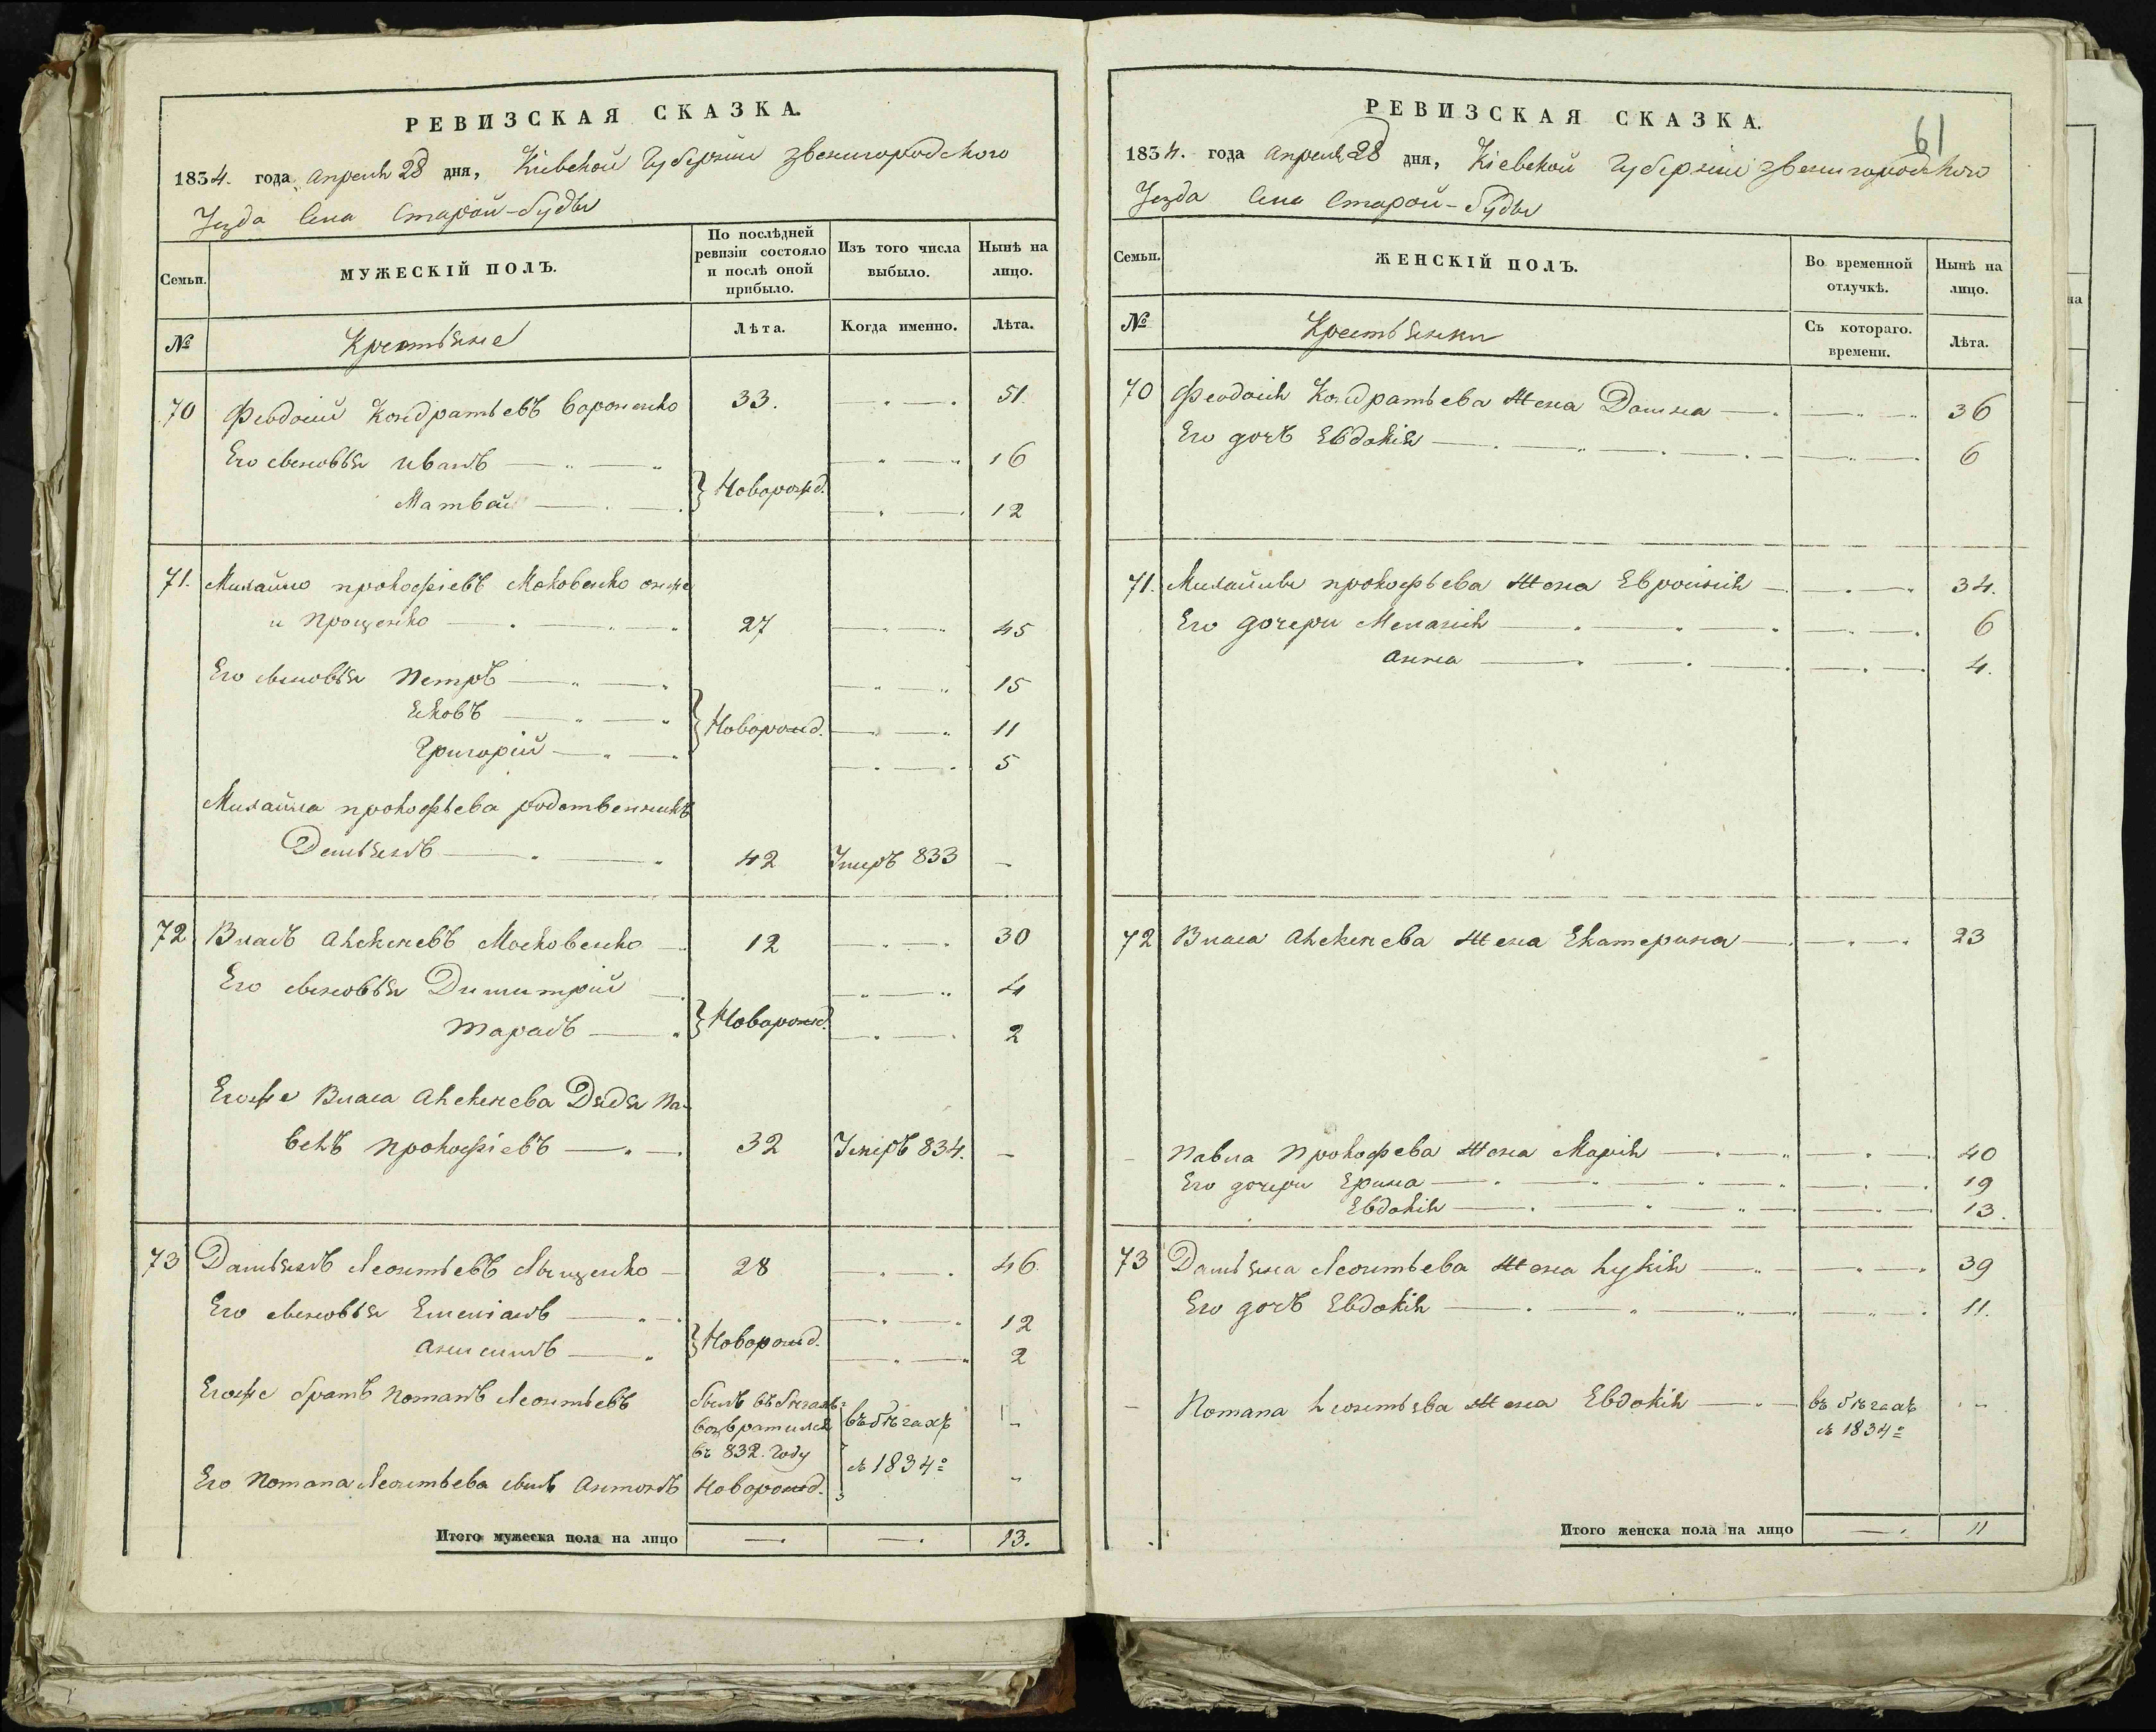 РЕВИЗСКАЯ СКАЗКА.
1834. года Апреля 28 дня, Киевской Губернии Звенигородского
Уезда Села Старой-Буды
Семьи.
МУЖЕСКІЙ ПОЛЪ.
По послѣдней ревизіи состояло и послѣ оной прибыло.
Изъ того числа выбыло.
Нынѣ на лицо.
№
Крестьяне
Лѣта.
Когда именно.
Лѣта.
70 Феодосий Кондратьевъ Вороненко 33. 51
Его сыновья Иванъ 16
Новорожд.
Матвей 12
71. Михайло Прокофіевъ онже
и Прощенко 27 45
Его сыновья Петръ 15
Яковъ Новорожд. 11
Григорій 5
Михайла Прокофьева родственникъ
Демьянъ 42 Умеръ 833
72 Власъ Моековенко 12 30
Его сыновья Димитрій 4
Новорожд.
Тарасъ 2
Егоже Власа Дядя Па-
велъ Прокофіевъ 32 Умеръ 834.
73 Дамьянъ Леонтьевъ 28 46.
Его сыновья Емеліанъ 12
Новорожд.
Анисимъ 2
Егоже братъ Романъ Леонтьевъ былъ въ бегахъ
возвратился въ бѣгахъ
въ 832. Году
съ 1834º
Его Романа Леонтьева сынъ Антонъ Новорожд.
Итого мужеска пола на лицо 13.
РЕВИЗСКАЯ СКАЗКА.
61
1834. года Апреля 28 дня, Кіевской Губерніи Звенигородского
Уезда Села Старой-Буды
Семьи.
ЖЕНСКІЙ ПОЛЪ.
Во временной отлучкѣ.
Нынѣ на лицо.
№
Крестьянки
Съ котораго. времени.
Лѣта.
70 Феодосия Кондратьева Жена Домна 36
Его дочь Евдокія 6
71. Михайлы Прокофьева Жена Евросиния 34.
Его дочери Мелания 6
Анна 4.
72 Власа Жена Екатерина 23
Павла Прокофева Жена Мария 40
Его дочери Ерина 19
Евдокия 13.
73 Дамьяна Леонтьева Жена Лукия 39
Его дочь Евдокия 11.
Романа Леонтьева Жена Евдокия въ бѣгахъ
съ 1834º
Итого женска пола на лицо 11